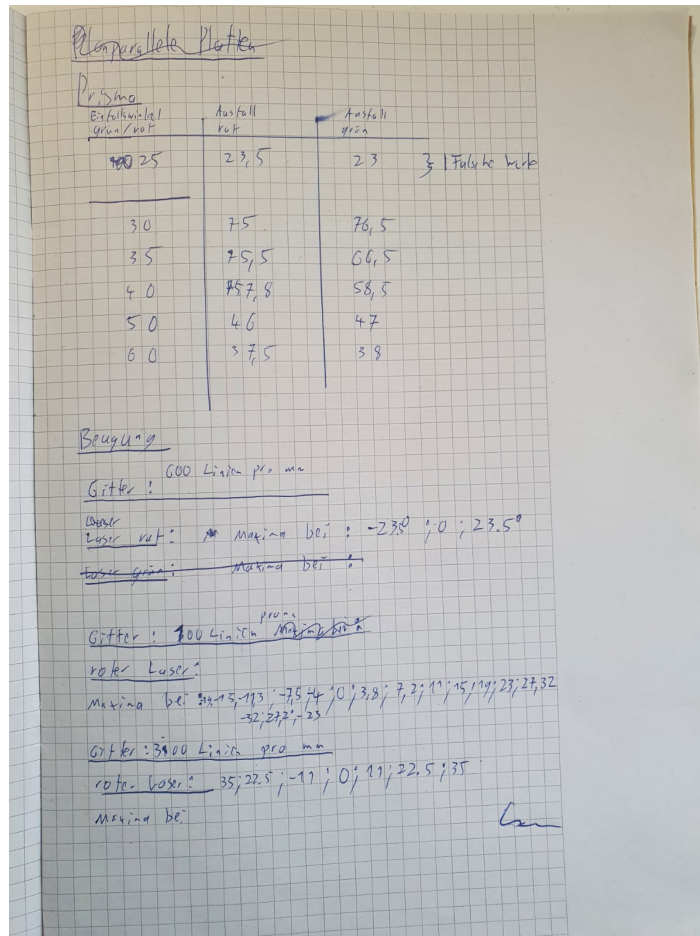 Planparallele Platten
Prisma
Einfallswinkel Ausfall Ausfall
grün/rot rot grün
25 23,5 23 } Falsche Werte
30 75 76,5
35 75,5 66,5
40 57,8 58,5
50 46 47
60 37,5 38
Beugung
600 Linien pro mm
Gitter :
Laser rot : Maxima bei : -23.5° ; 0 ; 23.5°
Laser grün : Maxima bei :
pro mm
Gitter : 100 Linien
roter Laser :
Maxima bei : -19,-15,-11,3 ; -7,5 ; -4 ; 0 ; 3,8 ; 7,2 ; 11 ; 15 ; 19 ; 23 ; 27, 32
-32 ; 27,2 ; -23
Gitter : 300 Linien pro mm
roter Laser : 35 ; 22.5 ; -11 ; 0 ; 11 ; 22.5 ; 35
Maxima bei